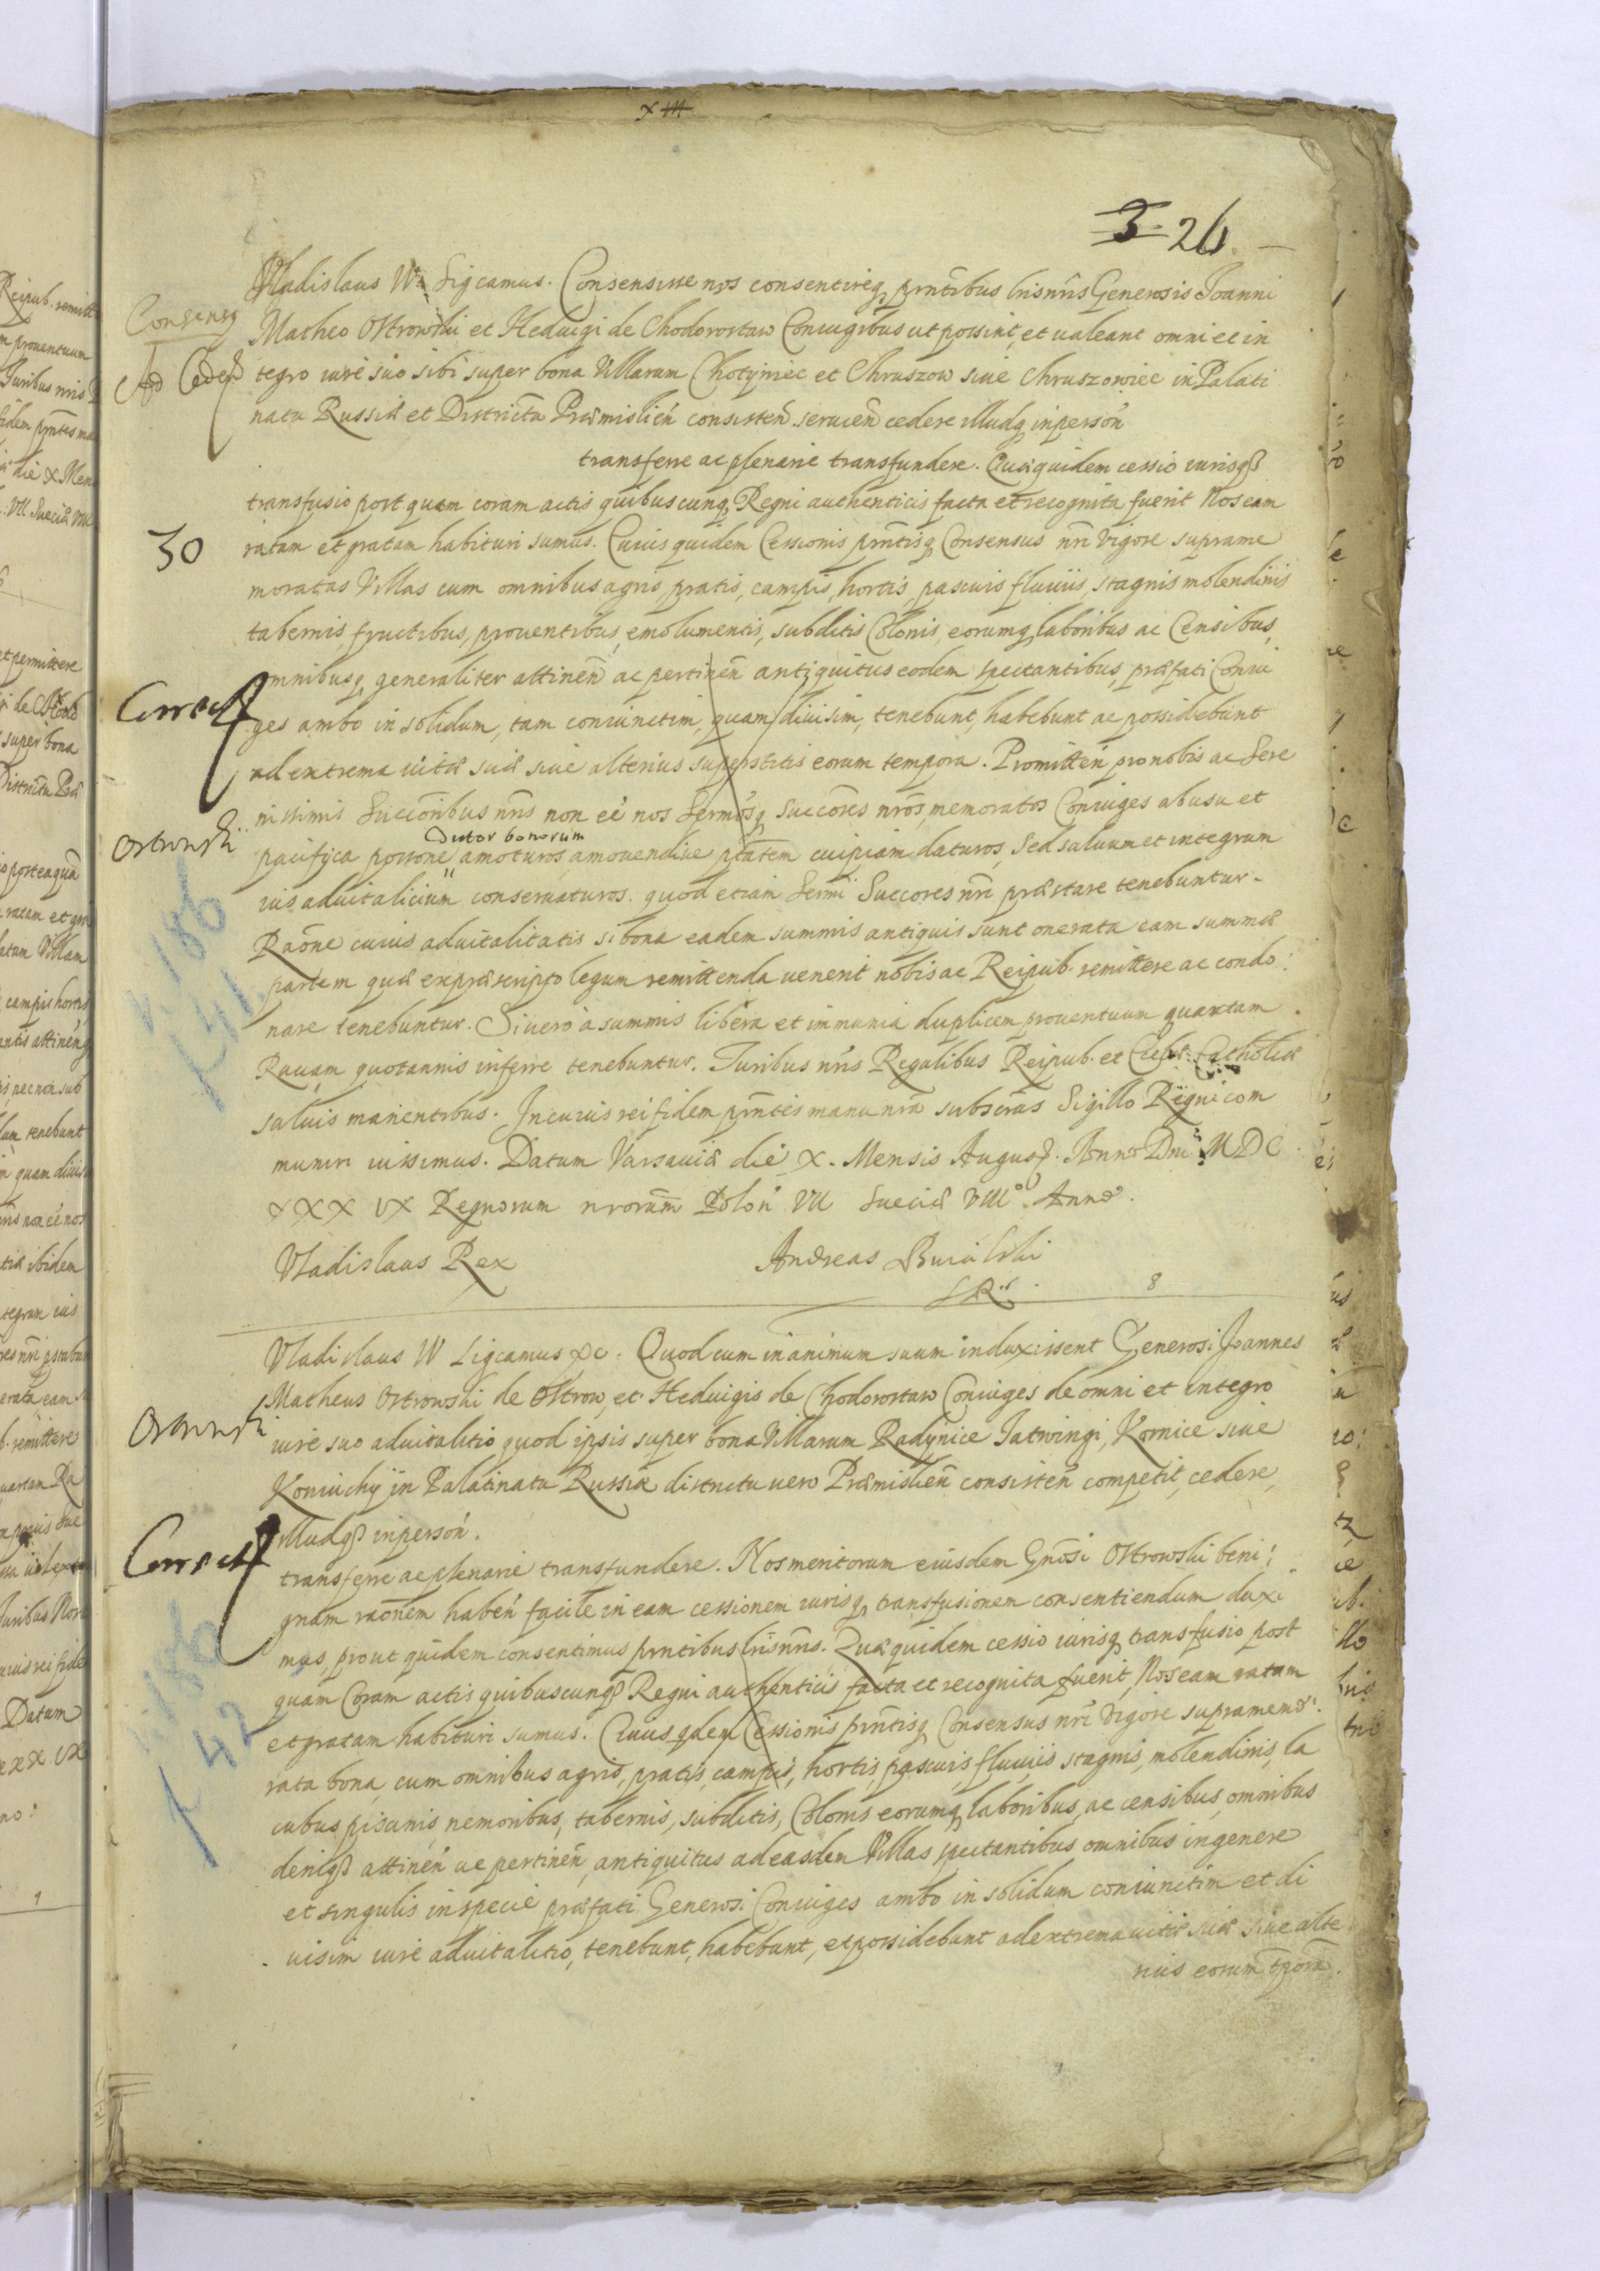 3. 26
Vladislaus IV Sigcamus. Consensisse nos consentireq prntibus lrisnris Generosis Joanni
Consensq
Matheo Ostrowski et Heduigi de Chodorostaw Coniugibus ut possint et ualeant omni et in
Ad Ceden
tegro iure suo sibi super bona Villarum Chotyniec et Chruszow siue Chruszowiec in Palati
natu Russiæ et Districtu Præmislien consisten seruien cedere illudq in person
transferre ac plenarie transfundere. Quæquidem cessio iurisq
transfusio post quam coram actis quibuscunq Regni authenticis facta et recognita fuerit Nos eam
30
ratam et gratam habituri sumus. Cuius quidem Cessionis prntisq Consensus nri Vigore suprame
moratas Villas cum omnibus agris, pratis, campis, hortis, pascuis fluuiis, stagnis molendinis
tabernis, fructibus, prouentibus, emolumentis, subditis Colonis, eorumq laboribus ac Censibus,
omnibusq generaliter attinen ac pertinen antiquitus eodem spectantibus, præfati Coniu
Correct
ges ambo in solidum, tam coniunctim, quam diuisim, tenebunt, habebunt ac possidebunt
ad extrema uitæ suæ siue alterius superstitis eorum tempora. Promitten pro nobis ac Sere
nissimis Succoribus nris non eé nos Sermosq Succores nros, memoratos Coniuges ab usu et
Ostrowski
Dictor bonorum
pacifica possone amoturos, amouendiue ptatem cuipiam daturos, Sed saluum et integrum
ius aduitalicium conseruaturos. quod etiam Sermi Succores nri præstare tenebuntur.
Raone cuius aduitalitatis si bona eadem summis antiquis sunt onerata eam summæ
partem quæ ex præscripto legum remittenda uenerit nobis ac Reipub. remittere ac condo
nare tenebuntur. Si uero à summis libera et immunia duplicem prouentuum quartam
Rauam quotannis inferre tenebuntur. Juribus nris Regalibus Reipub. et Catholicæ
saluis manentibus. In cuius rei fidem prntes manu nra subscras Sigillo Regni com
muniri iussimus. Datum Varsauiæ die X. Mensis August. Anno Dni MDC
XXXIX Regnorum nrorum Polon VII Sueciæ VIII Anno.
Vladislaus Rex
Andreas
8
Vladislaus IV Sigcamus &c. Quod cum in animum suum induxissent Generosi Joannes
Matheus Ostrowski de Ostrow, et Heduigis de Chodorostaw Coniuges de omni et integro
Ostrowski
iure suo aduitalitio quod ipsis super bona Villarum Radynice Jatwingi, Kornice siue
Koniuchy in Palatinatu Russiæ districtu uero Præmislien consisten competit, cedere,
illudq in person.
Correct
transferre ac plenarie transfundere. Nos meritorum eiusdem Gnosi Ostrowski beni
gnam raonem haben facile in eam cessionem iurisq transfusionem consentiendum duxi
mus, prout quidem consentimus prntibus lrisnris. Quæquidem cessio iurisq transfusio post
quam Coram actis quibuscunq Regni authenticis facta et recognita fuerit, Nos eam ratam
et gratam habituri sumus. Cuius qdem Cessionis prntisq Consensus nri Vigore supramemo
42
rata bona, cum omnibus agris, pratis, campis, hortis, pascuis, fluuiis stagnis, molendinis, la
cubus, piscinis, nemoribus, tabernis, subditis, Colonis eorumq laboribus, ac censibus, omnibus
deniq attinen ac pertinen, antiquitus ad easdem Villas spectantibus omnibus in genere
et singulis in specie præfati Generosi Coniuges ambo in solidum coniunctim et di
uisim iure aduitalitio, tenebunt, habebunt, et possidebunt ad extrema uitæ suæ siue alte
rius eorum tpora.